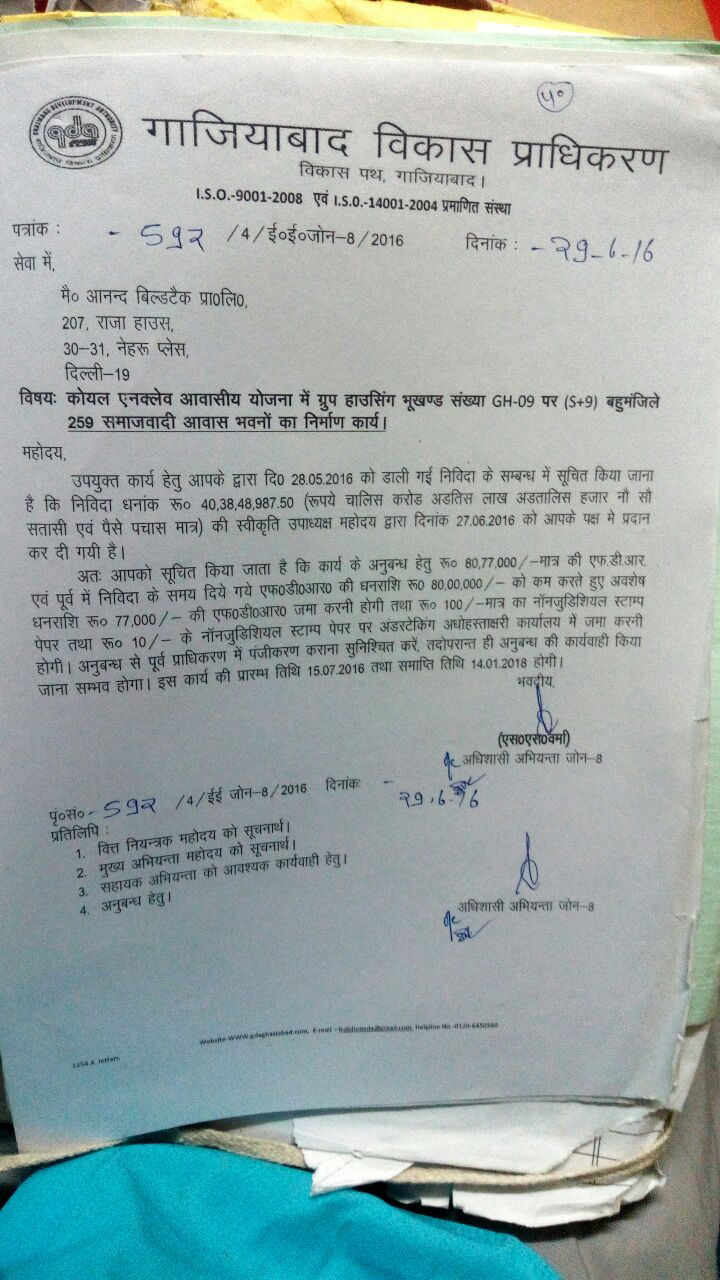 ५०
GHAZIABAD DEVELOPMENT AUTHORITY
gda
गाजियाबाद विकास प्राधिकरण
विकास पथ, गाजियाबाद।
I.S.O.-9001-2008 एवं I.S.O.-14001-2004 प्रमाणित संस्था
पत्रांक : - 592 /4/ई०ई०जोन-8/2016 दिनांक : - 29-6-16
सेवा में,
मै० आनन्द बिल्डटैक प्रा0लि0,
207, राजा हाउस,
30-31, नेहरू प्लेस,
दिल्ली-19
विषयः कोयल एनक्लेव आवासीय योजना में ग्रुप हाउसिंग भूखण्ड संख्या GH-09 पर (S+9) बहुमंजिले
259 समाजवादी आवास भवनों का निर्माण कार्य।
महोदय,
उपयुक्त कार्य हेतु आपके द्वारा दि0 28.05.2016 को डाली गई निविदा के सम्बन्ध में सूचित किया जाना
है कि निविदा धनांक रू० 40,38,48,987.50 (रूपये चालिस करोड अडतिस लाख अडतालिस हजार नौ सौ
सतासी एवं पैसे पचास मात्र) की स्वीकृति उपाध्यक्ष महोदय द्वारा दिनांक 27.06.2016 को आपके पक्ष मे प्रदान
कर दी गयी है।
अतः आपको सूचित किया जाता है कि कार्य के अनुबन्ध हेतु रू० 80,77,000/-मात्र की एफ.डी.आर.
एवं पूर्व में निविदा के समय दिये गये एफ0डी0आर0 की धनराशि रू0 80,00,000/- को कम करते हुए अवशेष
धनराशि रू० 77,000/- की एफ0डी0आर0 जमा करनी होगी तथा रू० 100/-मात्र का नॉनजुडिशियल स्टाम्प
पेपर तथा रू० 10/- के नॉनजुडिशियल स्टाम्प पेपर पर अंडरटेकिंग अधोहस्ताक्षरी कार्यालय में जमा करनी
होगी। अनुबन्ध से पूर्व प्राधिकरण में पंजीकरण कराना सुनिश्चित करें, तदोपरान्त ही अनुबन्ध की कार्यवाही किया
जाना सम्भव होगा। इस कार्य की प्रारम्भ तिथि 15.07.2016 तथा समाप्ति तिथि 14.01.2018 होगी।
भवदीय,
(एस0एस0वर्मा)
अधिशासी अभियन्ता जोन-8
पृं०सं०- 592 /4/ईई जोन-8/2016 दिनांकः - 29.6.16
प्रतिलिपि :
1. वित्त नियन्त्रक महोदय को सूचनार्थ।
2. मुख्य अभियन्ता महोदय को सूचनार्थ।
3. सहायक अभियन्ता को आवश्यक कार्यवाही हेतु।
4. अनुबन्ध हेतु।
अधिशासी अभियन्ता जोन-8
Website-WWW.gdaghaziabad.com, E-mail - Helpline No.-0120-6450380
1554 A letters